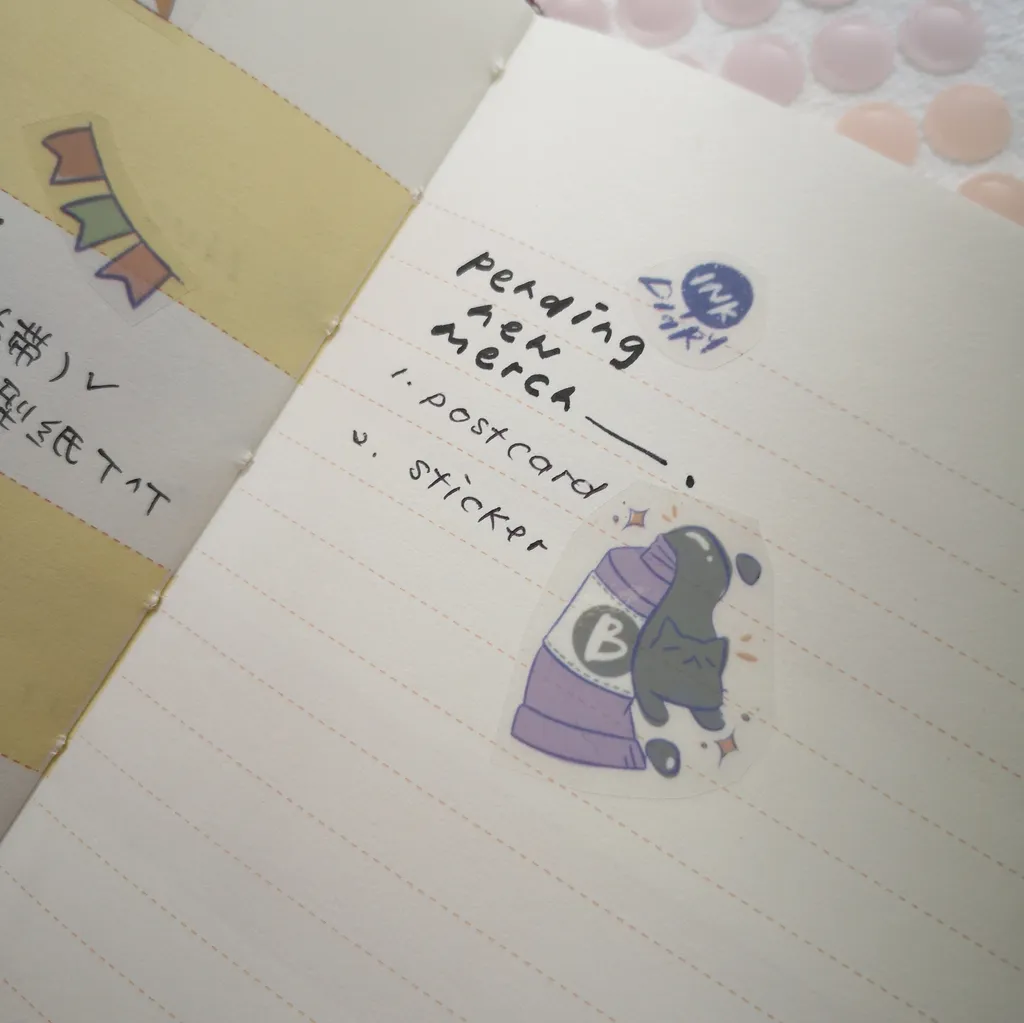 帶)✓
型紙T^T
pending
new
merch
1. postcard
2. sticker
INK
DIARY
B